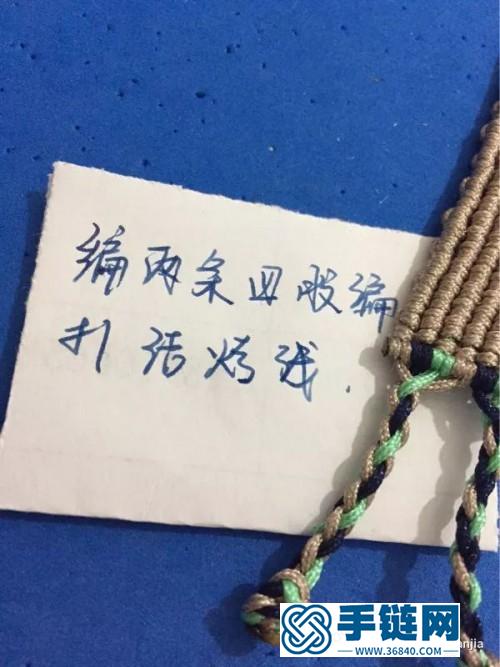 编两条四股编
扎结烧线.
手链网
www.36840.com